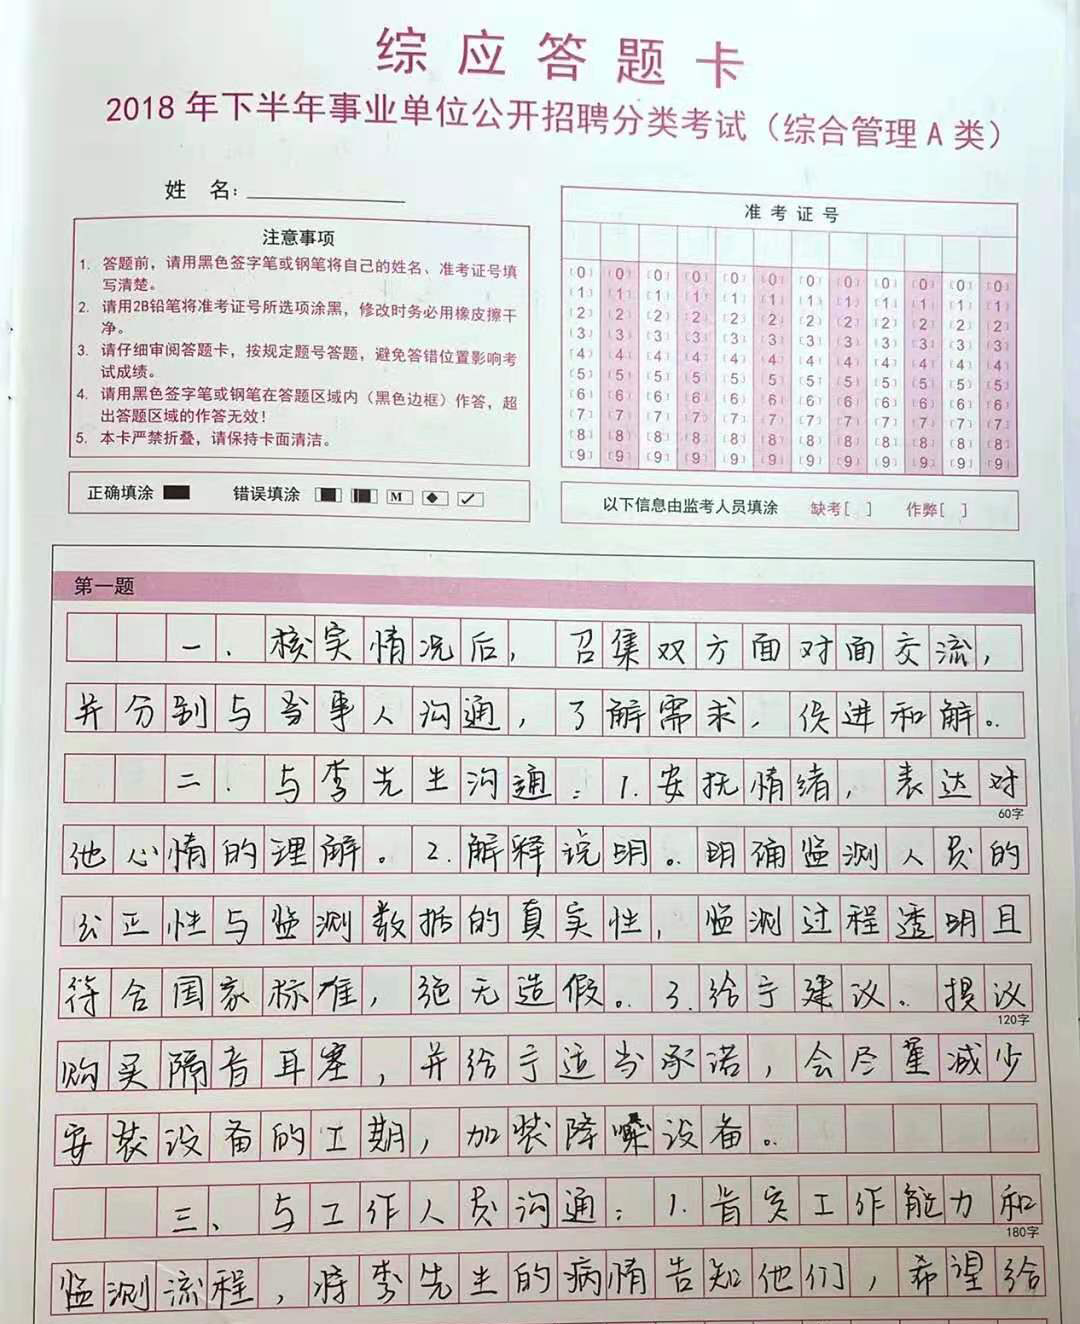 综应答题卡
2018年下半年事业单位公开招聘分类考试（综合管理A类）
姓 名：
注意事项
1. 答题前，请用黑色签字笔或钢笔将自己的姓名、准考证号填
写清楚。
2. 请用2B铅笔将准考证号所选项涂黑，修改时务必用橡皮擦干
净。
3. 请仔细审阅答题卡，按规定题号答题，避免答错位置影响考
试成绩。
4. 请用黑色签字笔或钢笔在答题区域内（黑色边框）作答，超
出答题区域的作答无效！
5. 本卡严禁折叠，请保持卡面清洁。
正确填涂 错误填涂 M
准考证号
[0] [0] [0] [0] [0] [0] [0] [0] [0] [0] [0] [0]
[1] [1] [1] [1] [1] [1] [1] [1] [1] [1] [1] [1]
[2] [2] [2] [2] [2] [2] [2] [2] [2] [2] [2] [2]
[3] [3] [3] [3] [3] [3] [3] [3] [3] [3] [3] [3]
[4] [4] [4] [4] [4] [4] [4] [4] [4] [4] [4] [4]
[5] [5] [5] [5] [5] [5] [5] [5] [5] [5] [5] [5]
[6] [6] [6] [6] [6] [6] [6] [6] [6] [6] [6] [6]
[7] [7] [7] [7] [7] [7] [7] [7] [7] [7] [7] [7]
[8] [8] [8] [8] [8] [8] [8] [8] [8] [8] [8] [8]
[9] [9] [9] [9] [9] [9] [9] [9] [9] [9] [9] [9]
以下信息由监考人员填涂 缺考[ ] 作弊[ ]
第一题
一、核实情况后，召集双方面对面交流，
并分别与当事人沟通，了解需求，促进和解。
二、与李先生沟通：1.安抚情绪，表达对
60字
他心情的理解。2.解释说明。明确监测人员的
公正性与监测数据的真实性，监测过程透明且
符合国家标准，绝无造假。3.给予建议。提议
120字
购买隔音耳塞，并给予适当承诺，会尽量减少
安装设备的工期，加装降噪设备。
三、与工作人员沟通：1.肯定工作能力和
180字
监测流程，将李先生的病情告知他们，希望给